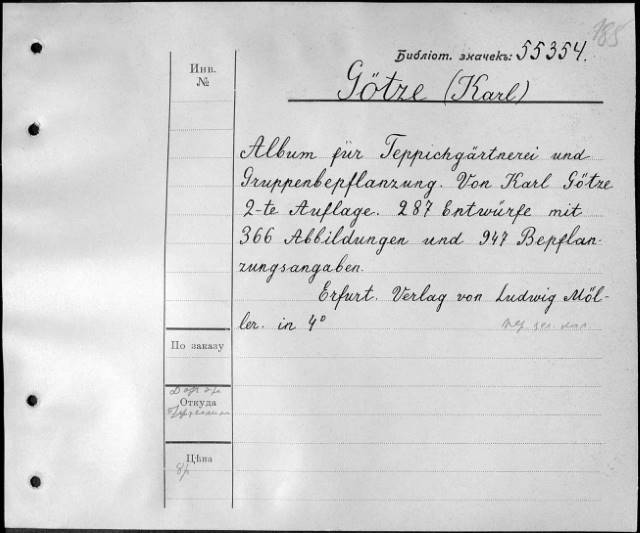 185
Библіот. значекъ: 55354.
Инв.
№
Götze (Karl)
Album für Teppichgärtnerei und
Gruppenbepflanzung. Von Karl Götze
2-te Auflage. 287 Entwürfe mit
366 Abbildungen und 947 Bepflan-
zungsangaben.
Erfurt. Verlag von Ludwig Möl-
ler. in 4°
По заказу
Откуда
Цѣна
8р